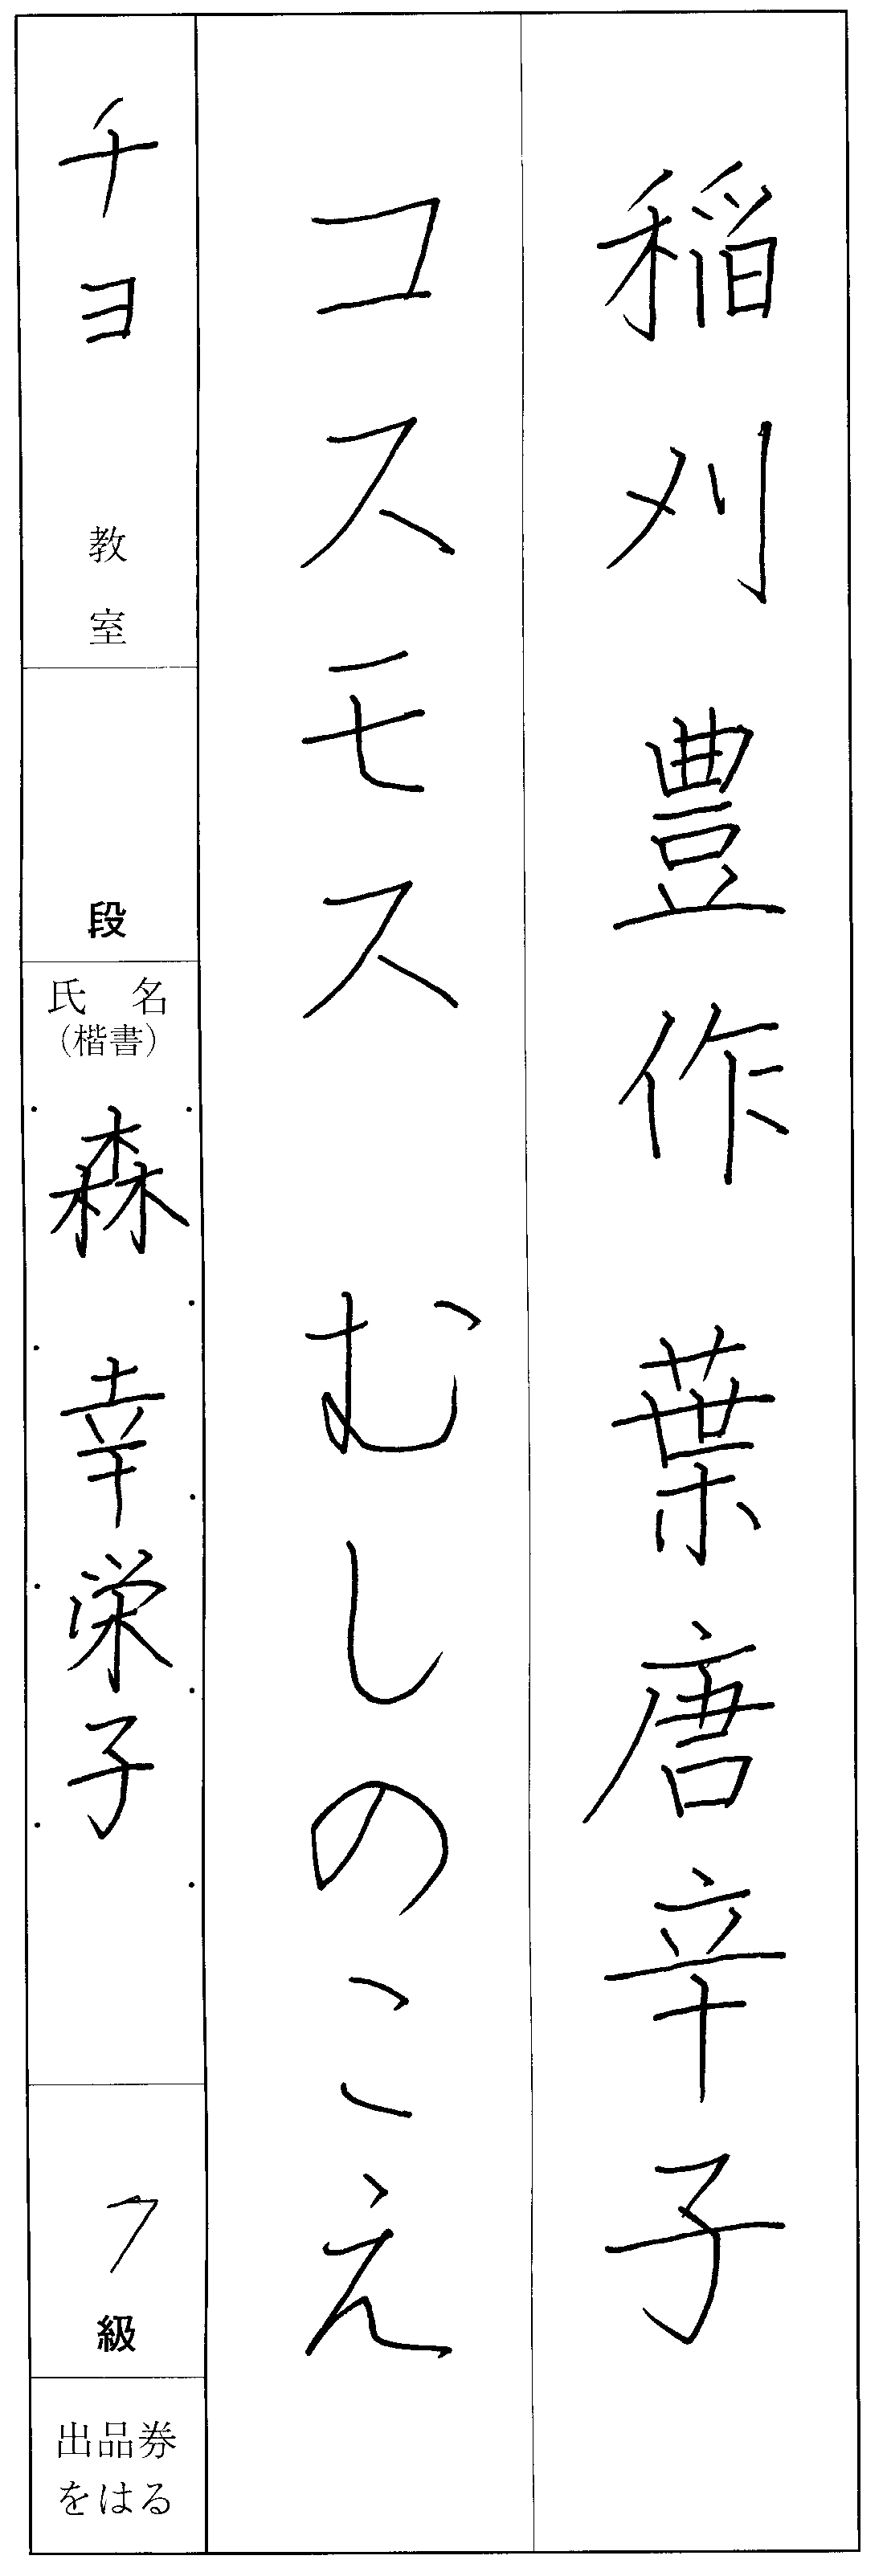 稲刈豊作葉唐辛子
コスモス むしのこえ
チヨ教室
段
氏名
（楷書）
森 幸栄子
7級
出品券
をはる